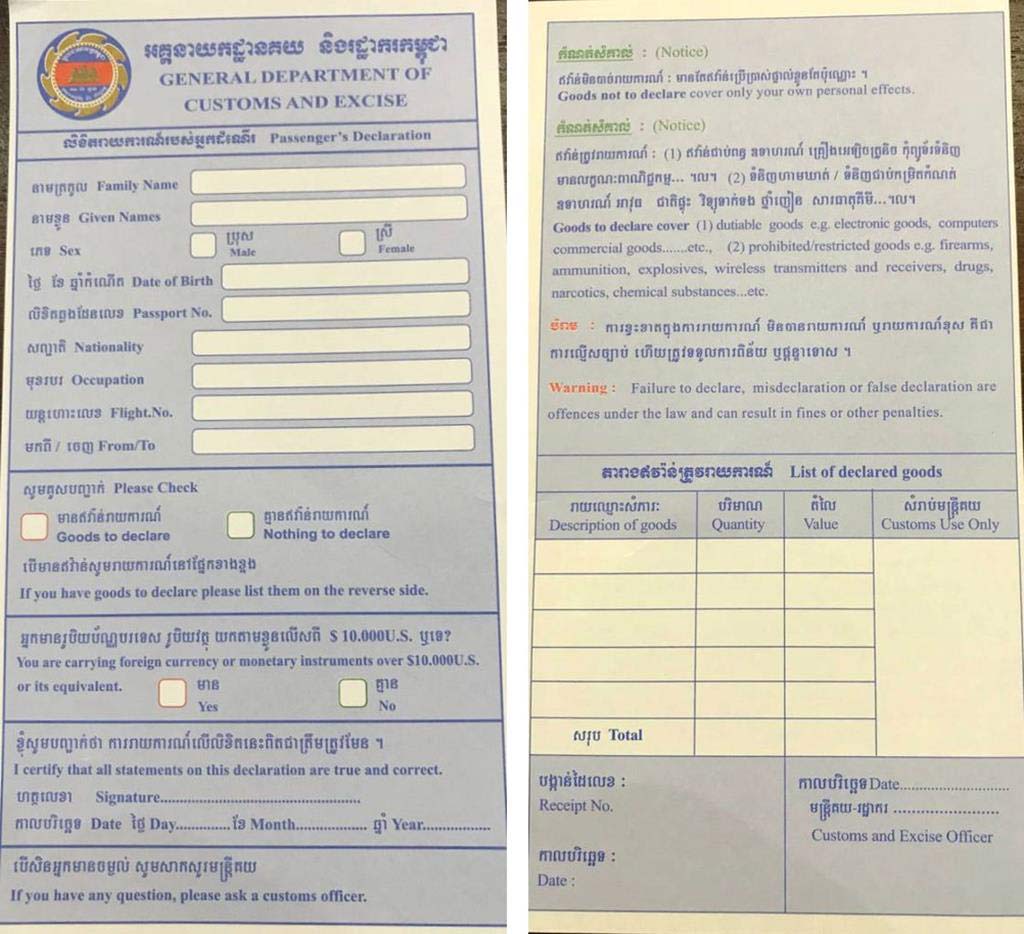 អគ្គនាយកដ្ឋានគយ និងរដ្ឋាករកម្ពុជា
GENERAL DEPARTMENT OF
CUSTOMS AND EXCISE
លិខិតរាយការណ៍របស់អ្នកដំណើរ Passenger's Declaration
នាមត្រកូល Family Name
នាមខ្លួន Given Names
ភេទ Sex
ប្រុស
Male
ស្រី
Female
ថ្ងៃ ខែ ឆ្នាំកំណើត Date of Birth
លិខិតឆ្លងដែនលេខ Passport No.
សញ្ជាតិ Nationality
មុខរបរ Occupation
យន្តហោះលេខ Flight.No.
មកពី / ចេញ From/To
សូមគូសបញ្ជាក់ Please Check
មានឥវ៉ាន់រាយការណ៍
Goods to declare
គ្មានឥវ៉ាន់រាយការណ៍
Nothing to declare
បើមានឥវ៉ាន់សូមរាយការណ៍នៅផ្នែកខាងខ្នង
If you have goods to declare please list them on the reverse side.
អ្នកមានរូបិយប័ណ្ណបរទេស រូបិយវត្ថុ យកតាមខ្លួនលើសពី $ 10.000U.S. ឬទេ?
You are carrying foreign currency or monetary instruments over $10.000U.S.
or its equivalent.
មាន
Yes
គ្មាន
No
ខ្ញុំសូមបញ្ជាក់ថា ការរាយការណ៍លើលិខិតនេះពិតជាត្រឹមត្រូវមែន ។
I certify that all statements on this declaration are true and correct.
ហត្ថលេខា Signature..................................................
កាលបរិច្ឆេទ Date ថ្ងៃ Day.............ខែ Month................. ឆ្នាំ Year.................
បើសិនអ្នកមានចម្ងល់ សូមសាកសួរមន្ត្រីគយ
If you have any question, please ask a customs officer.
កំណត់សំគាល់ : (Notice)
ឥវ៉ាន់មិនបាច់រាយការណ៍ : មានតែឥវ៉ាន់ប្រើប្រាស់ផ្ទាល់ខ្លួនតែប៉ុណ្ណោះ ។
Goods not to declare cover only your own personal effects.
កំណត់សំគាល់ : (Notice)
ឥវ៉ាន់ត្រូវរាយការណ៍ : (1) ឥវ៉ាន់ជាប់ពន្ធ ឧទាហរណ៍ គ្រឿងអេឡិចត្រូនិច កុំព្យូទ័រទំនិញ
មានលក្ខណៈពាណិជ្ជកម្ម... ។ល។ (2) ទំនិញហាមឃាត់ / ទំនិញជាប់កម្រិតកំណត់
ឧទាហរណ៍ អាវុធ ជាតិផ្ទុះ វិទ្យុទាក់ទង ថ្នាំញៀន សារធាតុគីមី...។ល។
Goods to declare cover (1) dutiable goods e.g. electronic goods, computers
commercial goods.......etc., (2) prohibited/restricted goods e.g. firearms,
ammunition, explosives, wireless transmitters and receivers, drugs,
narcotics, chemical substances...etc.
បំរាម : ការខ្វះខាតក្នុងការរាយការណ៍ មិនបានរាយការណ៍ ឬរាយការណ៍ខុស គឺជា
ការល្មើសច្បាប់ ហើយត្រូវទទួលការពិន័យ ឬផ្តន្ទាទោស ។
Warning : Failure to declare, misdeclaration or false declaration are
offences under the law and can result in fines or other penalties.
តារាងឥវ៉ាន់ត្រូវរាយការណ៍ List of declared goods
រាយឈ្មោះសំភារៈ
Description of goods
បរិមាណ
Quantity
តំលៃ
Value
សំរាប់មន្ត្រីគយ
Customs Use Only
សរុប Total
បង្កាន់ដៃលេខ :
Receipt No.
កាលបរិច្ឆេទ :
Date :
កាលបរិច្ឆេទ Date............................
មន្ត្រីគយ-រដ្ឋាករ ...........................
Customs and Excise Officer